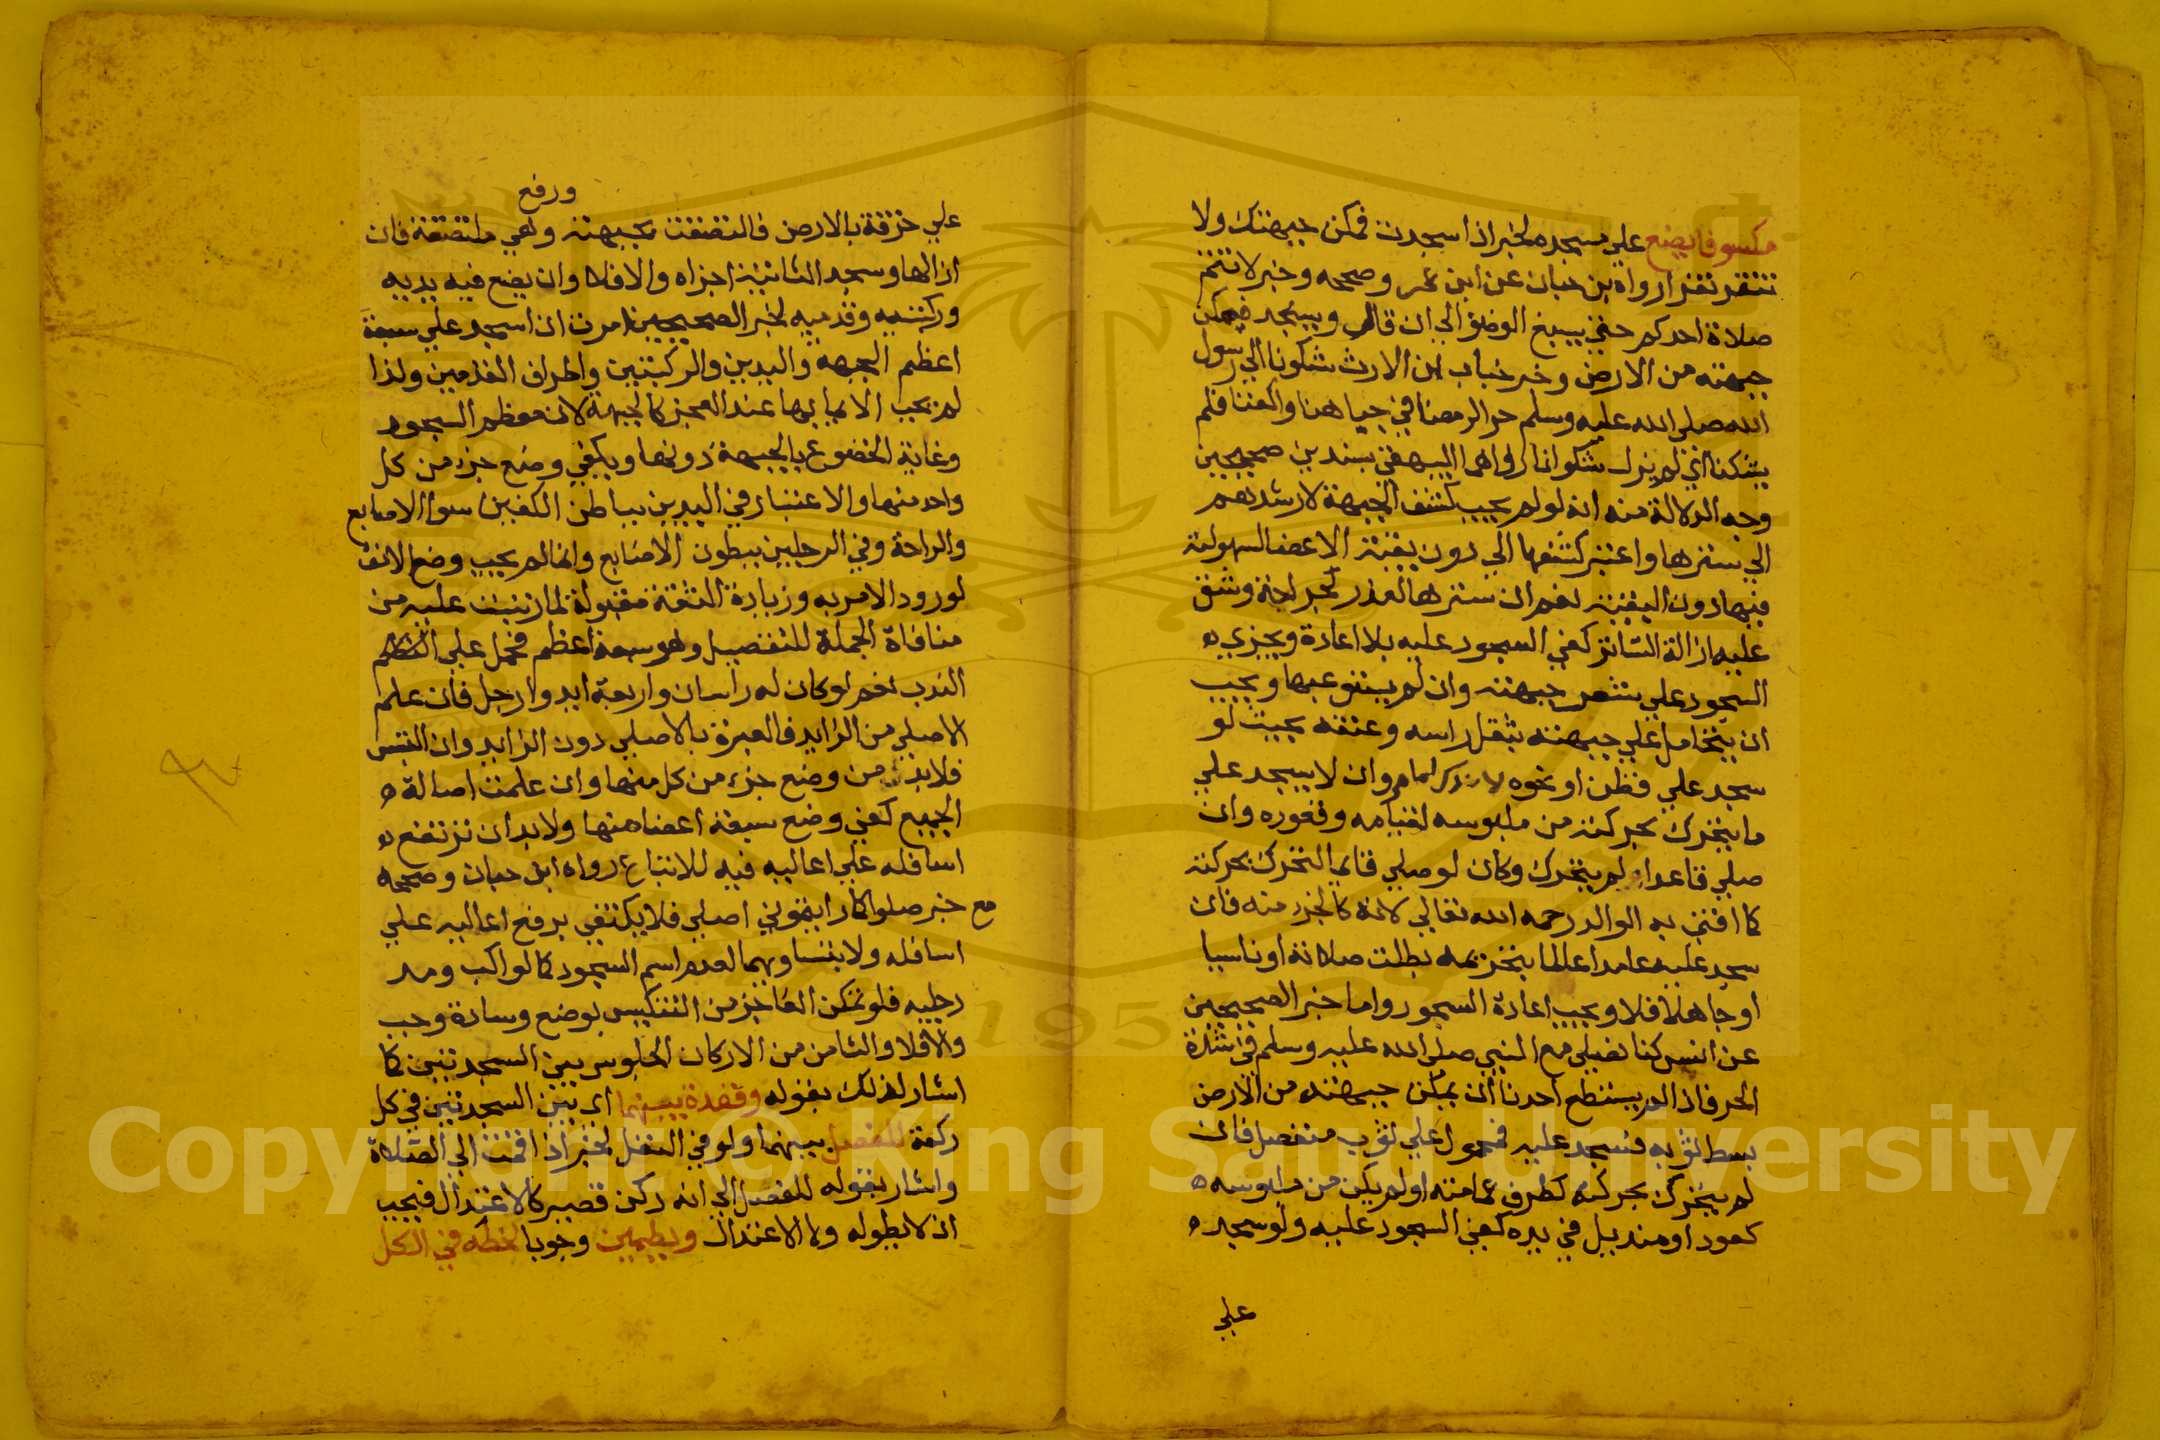 مكشوفا يضع على مسجده لخبر اذا سجدت فمكن جبهتك ولا
تنقر نقرا رواه بن حبان عن ابن عمر وصححه وخبر لا تتم
صلاة احدكم حتى يسبغ الوضؤ الي ان قال ويسجد فيمكن
جبهته من الارض وخبر خباب ابن الارث شكونا الي رسول
الله صلى الله عليه وسلم حر الرمضا في جباهنا واكفنا فلم
يشكنا اي لم يزل شكوانا رواهما البيهقي بسندين صحيحين
وجه الدلالة منه انه لو لم يجب كشف الجبهة لارشدهم
الي سترها واعتبر كشفها الي دون بقية الاعضا لسهولته
فيها دون البقية نعم ان سترها لعذر كجراحة وشق
عليه ازالة الساتر كفي السجود عليه بلا اعادة ويجزي ه
السجود علي شعر جبهته وان لم يستوعبها ويجب
ان يتحامل علي جبهته بثقل راسه وعنقه بحيث لو
سجد علي قطن او نحوه لاندك لما مر وان لا يسجد علي
ما يتحرك بحركته من ملبوسه لقيامه وقعوده وان
صلي قاعدا ولم يتحرك وكان لو صلي قايما لتحرك بحركته
كما افتي به الوالد رحمه الله تعالي لانه كالجزء منه فان
سجد عليه عامدا عالما بتحريمه بطلت صلاته او ناسيا
او جاهلا فلا ويجب اعادة السجود واما خبر الصحيحين
عن انس كنا نصلي مع النبي صلي الله عليه وسلم في شدة
الحر فاذا لم يستطع احدنا ان يمكن جبهته من الارض
بسط ثوبه فسجد عليه فمحمول علي ثوب منفصل فان
لم يتحرك بحركته كطرف عمامته او لم يكن من ملبوسه ه
كعود او منديل في يده كفي السجود عليه ولو سجد ه
علي
ورفع
علي خرقة بالارض فالتصقت بجبهته وهي ملتصقة فان
ازالها وسجد الثانية اجزاه والا فلا وان يضع فيه يديه
وركبتيه وقدميه لخبر الصحيحين امرت ان اسجد علي سبعة
اعظم الجبهة واليدين والركبتين واطراف القدمين ولذا
لم يجب الايما بها عند العجز كالجبهة لانه معظم السجود
وغاية الخضوع بالجبهة دونها ويكفي وضع جزء من كل
واحد منها والاعتبار في اليدين بباطن الكفين سوا الاصابع
والراحة وفي الرجلين ببطون الاصابع وانما لم يجب وضع الانف
لورود الامر به وزيادة الثقة مقبولة لما يترتب عليه من
منافاة الجملة للتفصيل وهو سبعة اعظم فحمل علي
الندب نعم لو كان له راسان واربعة ايد وارجل فان علم
الاصلي من الزايد فالعبرة بالاصلي دون الزايد وان التبس
فلا بد من وضع جزء من كل منها وان علمت اصالة ه
الجميع كفي وضع سبعة اعضا منها ولا بد ان ترتفع ه
اسافله علي اعاليه فيه للاتباع رواه ابن حبان وصححه
مع خبر صلوا كما رايتموني اصلي فلا يكتفي برفع اعاليه علي
اسافله ولا بتساويهما لعدم اسم السجود كما لو اكب ومد
رجليه فلو تمكن العاجز من التنكيس بوضع وسادة وجب
والا فلا والثامن من الاركان الجلوس بين السجدتين كما
اشار لذلك بقوله وقعدة بينهما اي بين السجدتين في كل
ركعة للفصل بينهما ولو في النفل لخبر اذا اقمت الي الصلاة
واشار بقوله للفصل الي انه ركن قصير كالاعتدال فيجب
ان لا يطوله ولا الاعتدال ويطمين وجوبا لحظه في الكل